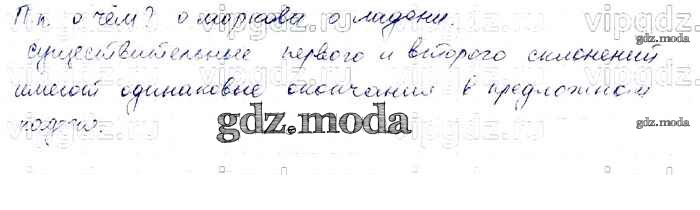 П.п. о чём? о моркови о ладони.
существительные первого и второго склонений
имеют одинаковые окончания в предложном
падеже.
gdz.moda